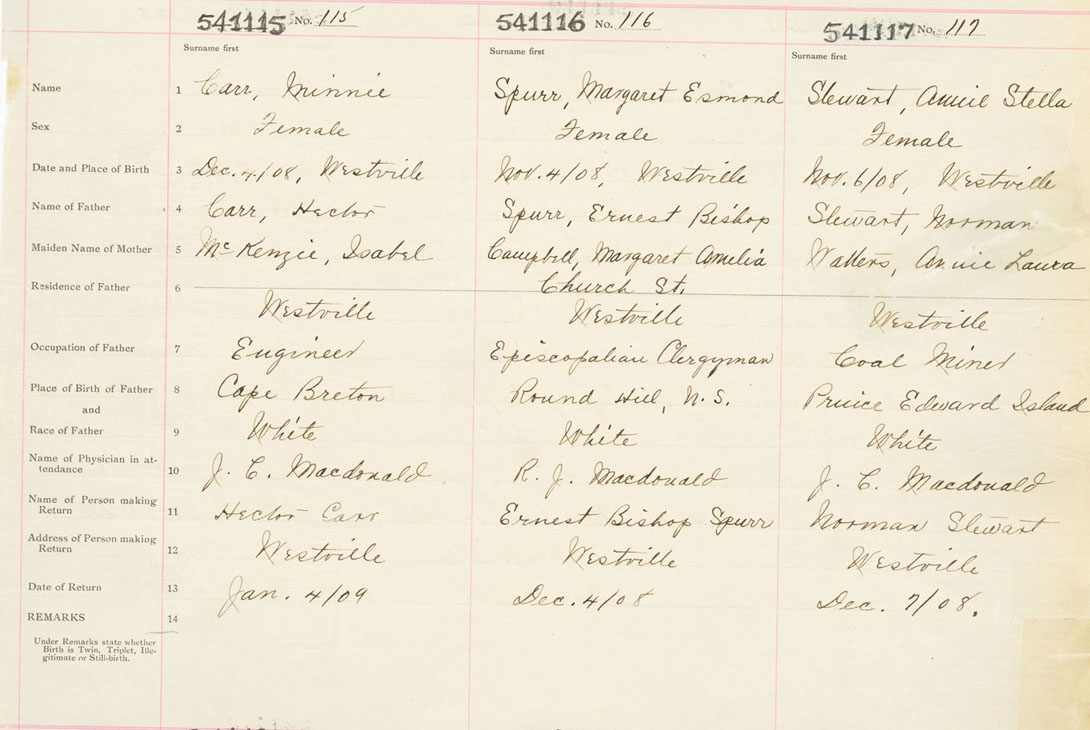 541115 No. 115 541116 No. 116 541117 No. 117
Surname first Surname first Surname first
Name 1 Carr, Minnie Spurr, Margaret Esmond Stewart, Annie Stella
Sex 2 Female Female Female
Date and Place of Birth 3 Dec. 4/08, Westville Nov. 4/08, Westville Nov. 6/08, Westville
Name of Father 4 Carr, Hector Spurr, Ernest Bishop Stewart, Norman
Maiden Name of Mother 5 McKenzie, Isabel Campbell, Margaret Amelia Watters, Annie Laura
Residence of Father 6 Church St.
Westville Westville Westville
Occupation of Father 7 Engineer Episcopalian Clergyman Coal Miner
Place of Birth of Father 8 Cape Breton Round Hill, N. S. Prince Edward Island
and
Race of Father 9 White White White
Name of Physician in at-
tendance 10 J. C. Macdonald R. J. Macdonald J. C. Macdonald
Name of Person making
Return 11 Hector Carr Ernest Bishop Spurr Norman Stewart
Address of Person making
Return 12 Westville Westville Westville
Date of Return 13 Jan. 4/09 Dec. 4/08 Dec. 7/08.
REMARKS 14
Under Remarks state whether
Birth is Twin, Triplet, Ille-
gitimate or Still-birth.